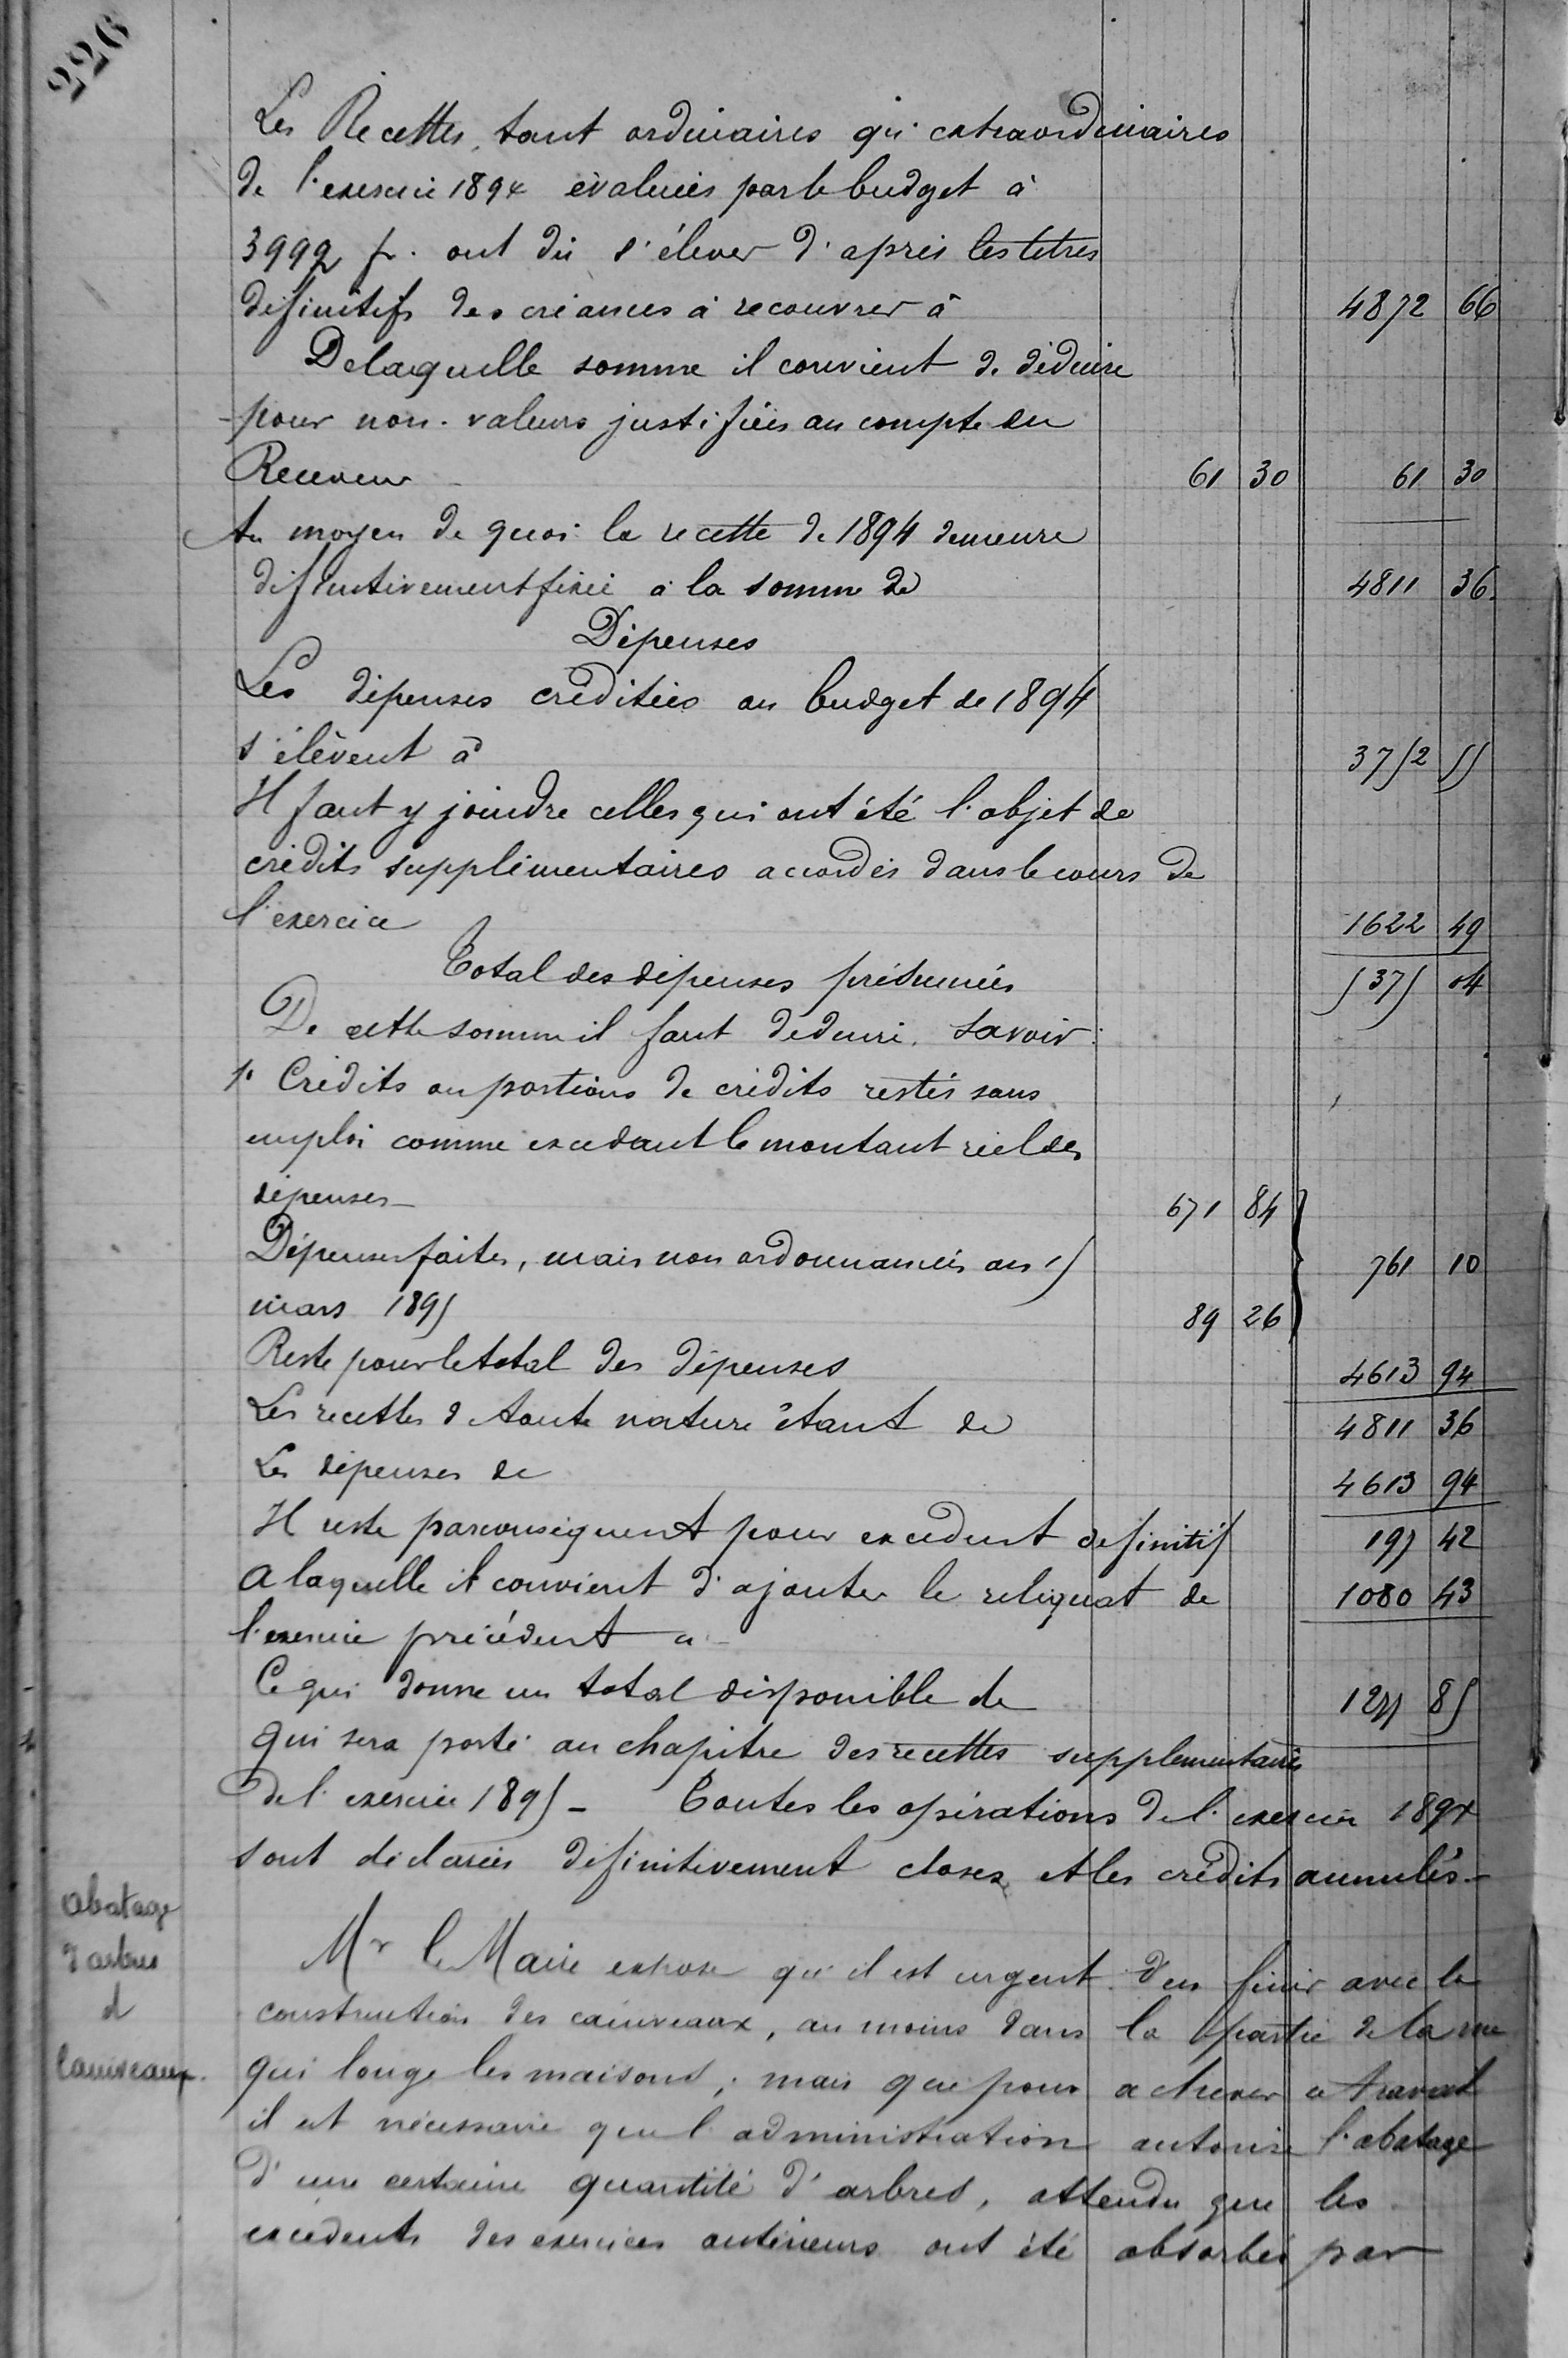 226
Les Recettes, tant ordinaires qu'extraordinaires
de l'exercice 1894 évaluées par le budget à
3992 fr. ont dû s'élever d'après les titres
définitifs des créances à recouvrer à 4872 66
De laquelle somme il convient de déduire
pour non-valeurs justifiées au compte du
Receveur 61 30 61 30
Au moyen de quoi la recette de 1894 demeure
définitivement fixée à la somme de 4811 36
Dépenses
Les dépenses créditées au budget de 1894
s'élèvent à 3752 55
Il faut y joindre celles qui ont été l'objet de
crédits supplémentaires accordés dans le cours de
l'exercice 1622 49
Total des dépenses présumées 5375 04
De cette somme il faut déduire, savoir:
1° Crédits ou portions de crédits restés sans
emploi comme excédant le montant réel des
dépenses 671 84
Dépenses faites, mais non ordonnancées au 15 761 10
mars 1895 89 26
Reste pour le total des dépenses 4613 94
Les recettes de toute nature étant de 4811 36
Les dépenses de 4613 94
Il reste par conséquent pour excédent définitif 197 42
à laquelle il convient d'ajouter le reliquat de 1080 43
l'exercice précédent à
Ce qui donne un total disponible de 1277 85
qui sera porté au chapitre des recettes supplémentaires
de l'exercice 1895 - Toutes les opérations de l'exercice 1894
sont déclarées définitivement closes et les crédits annulés.-
abatage
d'arbres
et
Caniveaux.
Mr le Maire expose qu'il est urgent d'en finir avec la
construction des caniveaux, au moins dans la partie de la rue
qui longe les maisons; mais que pour achever ce travail
il est nécessaire que l'administration autorise l'abatage
d'une certaine quantité d'arbres, attendu que les
excédents des exercices antérieurs ont été absorbés par